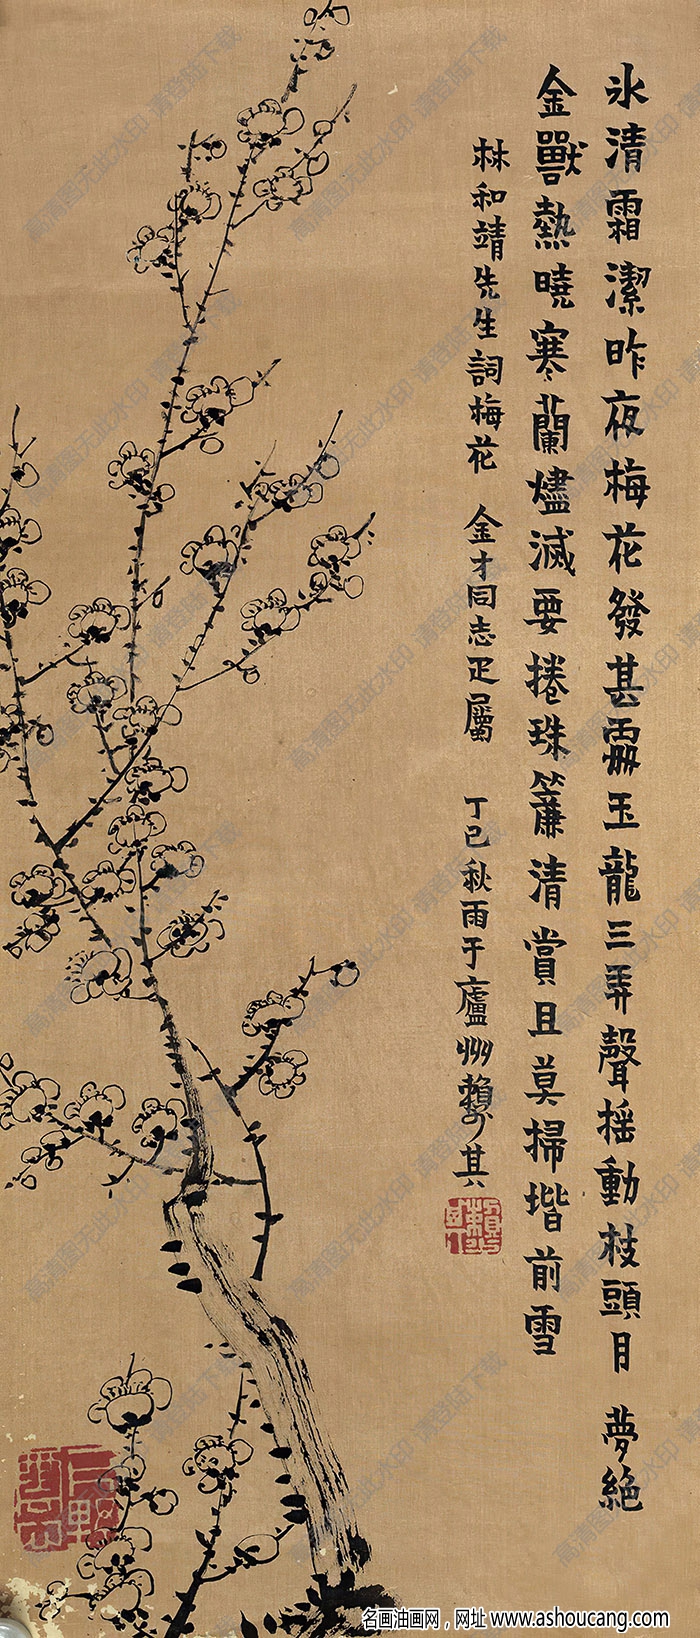 氷清霜潔昨夜梅花發甚處玉龍三弄聲揺動枝頭月　夢絶
金獸熱曉寒蘭燼滅要捲珠簾清賞且莫掃堦前雪
林和靖先生詞梅花　金才同志疋屬　丁巳秋雨于廬州賴少其
名画油画网，网址 www.ashoucang.com
高清图无此水印 请登陆下载